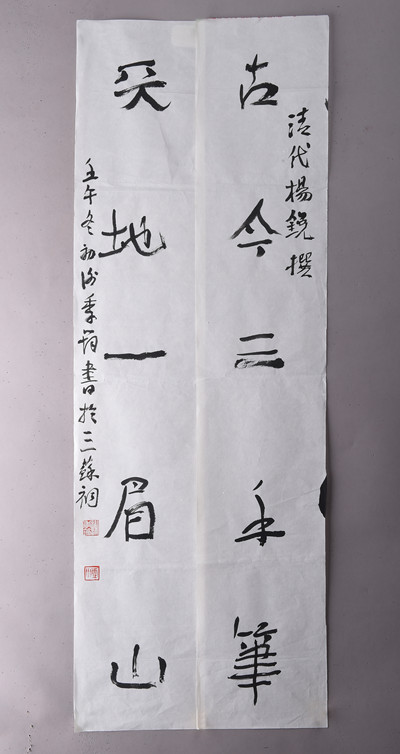 清代楊鋭撰
古今三手筆
天地一眉山
壬午冬初谢季筠書於三蘇祠